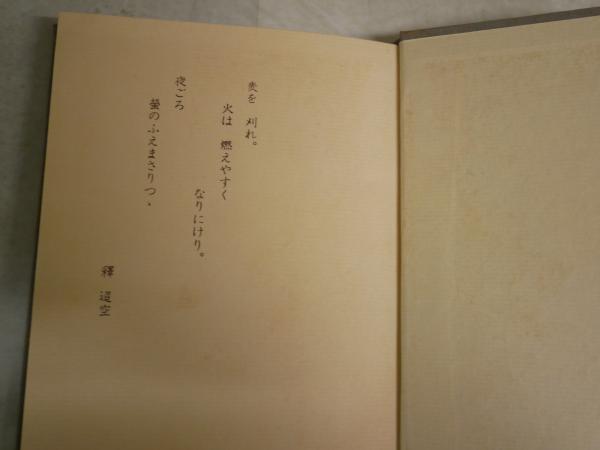 麦を 刈れ。
火は 燃えやすく
なりにけり。
夜ごろ
螢のふえまさりつゝ
釋 迢空